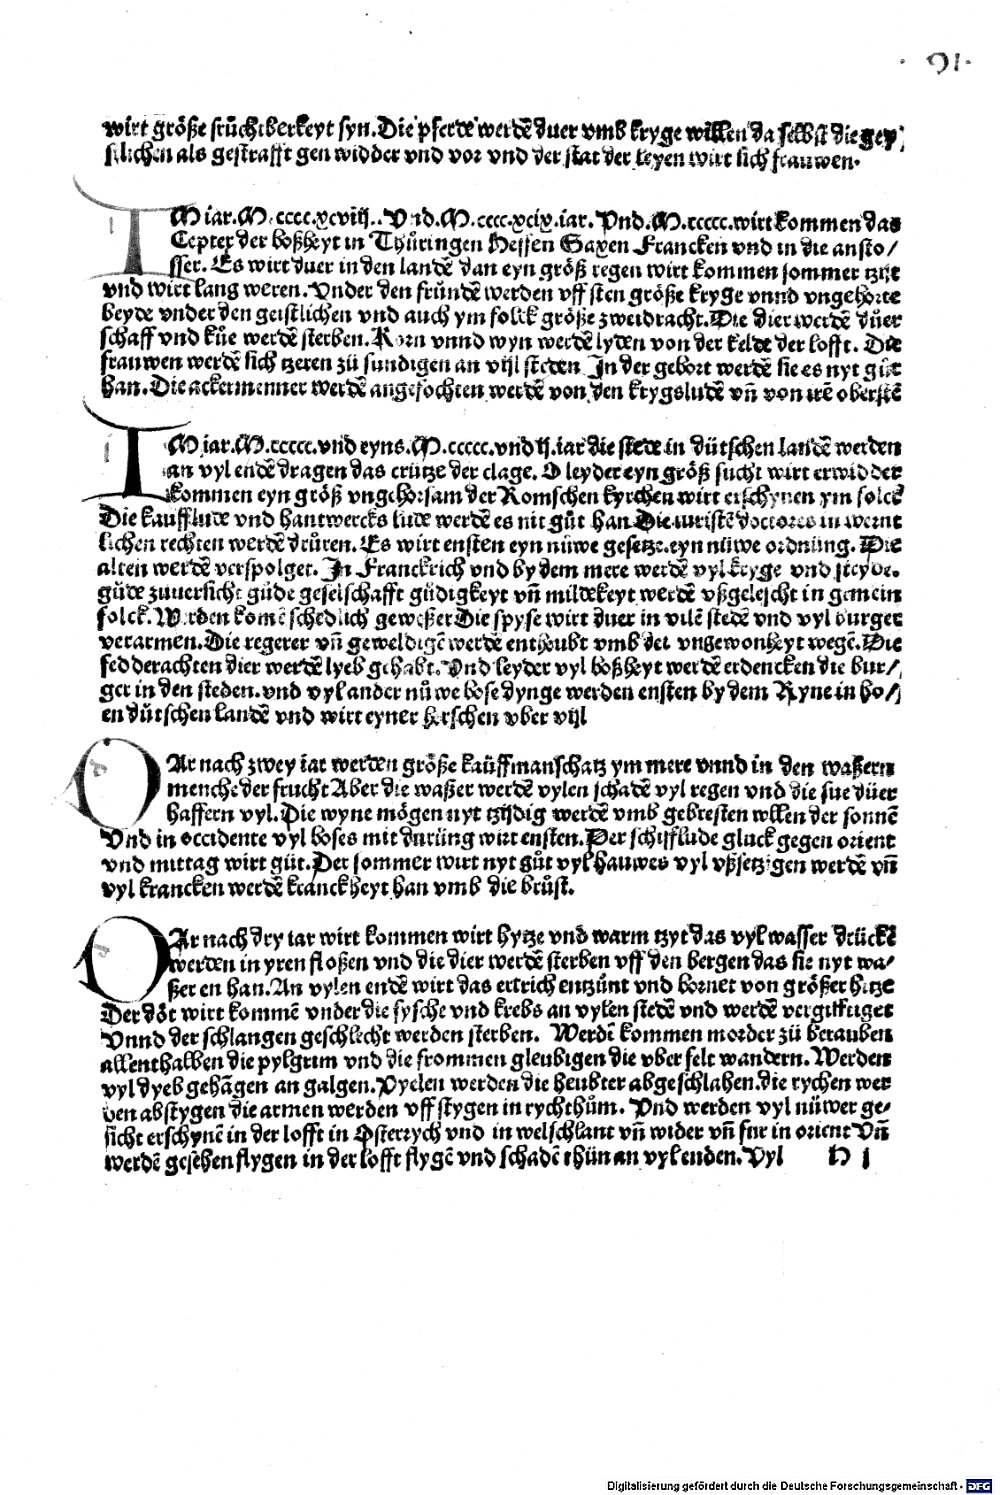 91
wirt größe früchtberkeyt syn. Die pferde werdē duer vmb kryge willen da selbst die gey/
stlichen als gestrafft gen widder vnd vor vnd der stat der leyen wirt sich frauwen.
IM iar. M. cccc. xcviij.. Vnd. M. cccc. xcix. iar. Vnd. M. ccccc. wirt kommen das
Cepter der boßheyt in Thüringen Hessen Saxen Francken vnd in die ansto/
sser. Es wirt duer in den landē dan eyn größ regen wirt kommen sommer tzijt
vnd wirt lang weren. Vnder den fründē werden vff sten größe kryge vnnd vngehorte
beyde vnder den geistlichen vnd auch ym folck größe zweidracht. Die dier werdē düer
schaff vnd küe werdē sterben. Korn vnnd wyn werdē lyden von der kelde der lofft. Die
frauwen werdē sich tzeren zü sundigen an vijl steden In der gebort werdē sie es nyt güt
han. Die ackermenner werdē angefochten werdē von den krygsludē vn̄ von irē oberstē
IM iar. M. ccccc. vnd eyns. M. ccccc. vnd ij. iar die stede in dütschen landē werden
an vyl endē dragen das crütze der clage. O leyder eyn größ sucht wirt erwidder
kommen eyn größ vngehorsam der Romschen kyrchen wirt erschynen ym folck
Die kauffludē vnd hantwercks ludē werdē es nit güt han Die iuristē doctores in wernt
lichen rechten werdē drüren. Es wirt ensten eyn nüwe gesetze. eyn nüwe ordnüng. Die
alten werdē verspolget. In Franckrich vnd by dem mere werdē vyl kryge vnd
güde zuuersicht güde geselschafft güdigkeyt vn̄ mildekeyt werdē vßgelescht in gemein
folck. Werden komē schedlich geweßer Die spyse wirt duer in vilē stedē vnd vyl burger
verarmen. Die regerer vn̄ geweldigē werdē entheubt vmb der vngewonheyt wegē. Die
fedderachten dier werdē lyeb gehabt. Vnd leyder vyl boßheyt werdē erdencken die bur/
ger in den steden. vnd vyl ander nüwe bose dynge werden ensten by dem Ryne in ho/
en dütschen landē vnd wirt eyner herschen vber vijl
DAr nach zwey iar werden größe kaüffmanschatz ym mere vnnd in den waßern
menche der frucht Aber die waßer werdē vylen schadē vyl regen vnd die sue düer
haffern vyl. Die wyne mögen nyt tzijdig werdē vmb gebresten willen der sonnē
Vnd in occidente vyl boses mit durüng wirt ensten. Der schifflude gluck gegen orient
vnd mittag wirt güt. Der sommer wirt nyt güt vyl hauwes vyl vßsetzigen werdē vn̄
vyl krancken werdē kranckheyt han vmb die brüst.
DAr nach dry iar wirt kommen wirt hytze vnd warm tzyt das vyl wasser drückē
werden in yren floßen vnd die dier werdē sterben vff den bergen das sie nyt wa/
ßer en han. An vylen endē wirt das ertrich entzünt vnd bornet von größer hitze
Der döt wirt kommē vnder die fysche vnd krebs an vylen stedē vnd werdē vergifftiget
Vnnd der schlangen geschlecht werden sterben. Werdē kommen morder zü berauben
allenthalben die pylgrim vnd die frommen gleubigen die vber felt wandern. Werden
vyl dyeb gehāgen an galgen. Vyelen werden die heubter abgeschlahen. die rychen wer
den abstygen die armen werden vff stygen in rychthüm. Vnd werden vyl nüwer ge/
sicht erschynē in der lofft in Osterrych vnd in welschlant vn̄ wider vn̄ fur in orient Vn̄
werdē gesehen flygen in der lofft flygē vnd schadē thün an vyl enden. Vyl H j
Digitalisierung gefördert durch die Deutsche Forschungsgemeinschaft - DFG